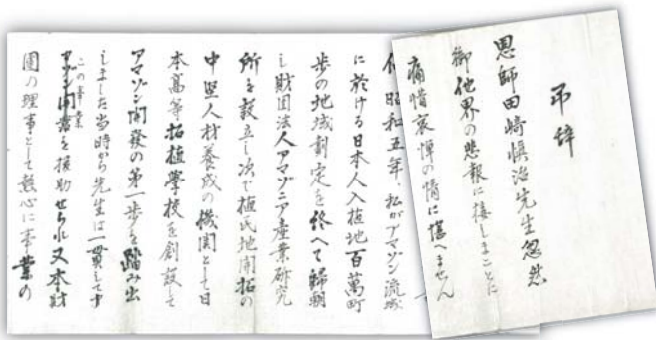 弔辞
恩師田崎愼治先生忽然
御他界の悲報に接しまことに
痛惜哀悼の情に堪へません
昭和五年、私がアマゾン流域
に於ける日本人入植地百萬町
歩の地域劃定を終へて歸朝
し財団法人アマゾニア産業研究
所を設立し次で植民地開拓の
中堅人材養成の機関として日
本高等拓植學校を創設して
アマゾン開發の第一歩を踏み出
しました当時から先生は一貫して
この事業
アマゾン開發を援助せられ又本財
團の理事として熱心に事業の